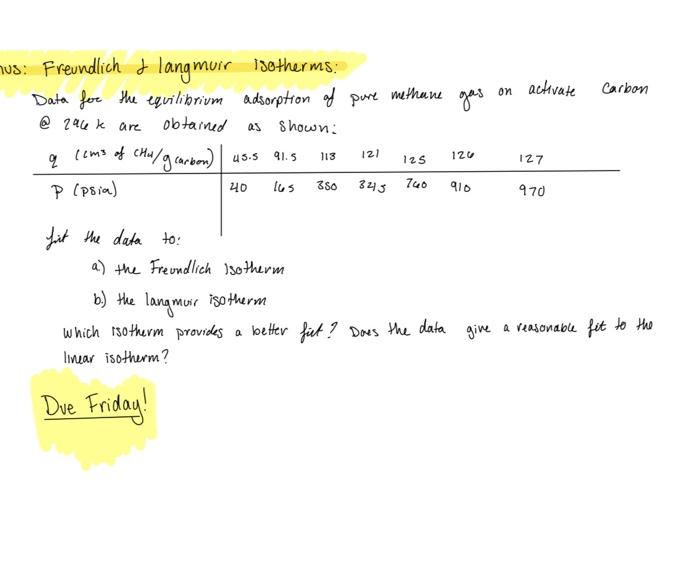 nus: Freundlich & langmuir Isotherms:
Data for the equilibrium adsorption of pure methane gas on activate Carbon
@ 296 k are obtained as shown:
q (cm3 of CH4/g carbon) 45.5 91.5 113 121 125 126 127
P (psia) 40 165 350 545 760 910 970
fit the data to:
a) the Freundlich Isotherm
b.) the langmuir isotherm
which isotherm provides a better fit? Does the data give a reasonable fit to the
linear isotherm?
Due Friday!